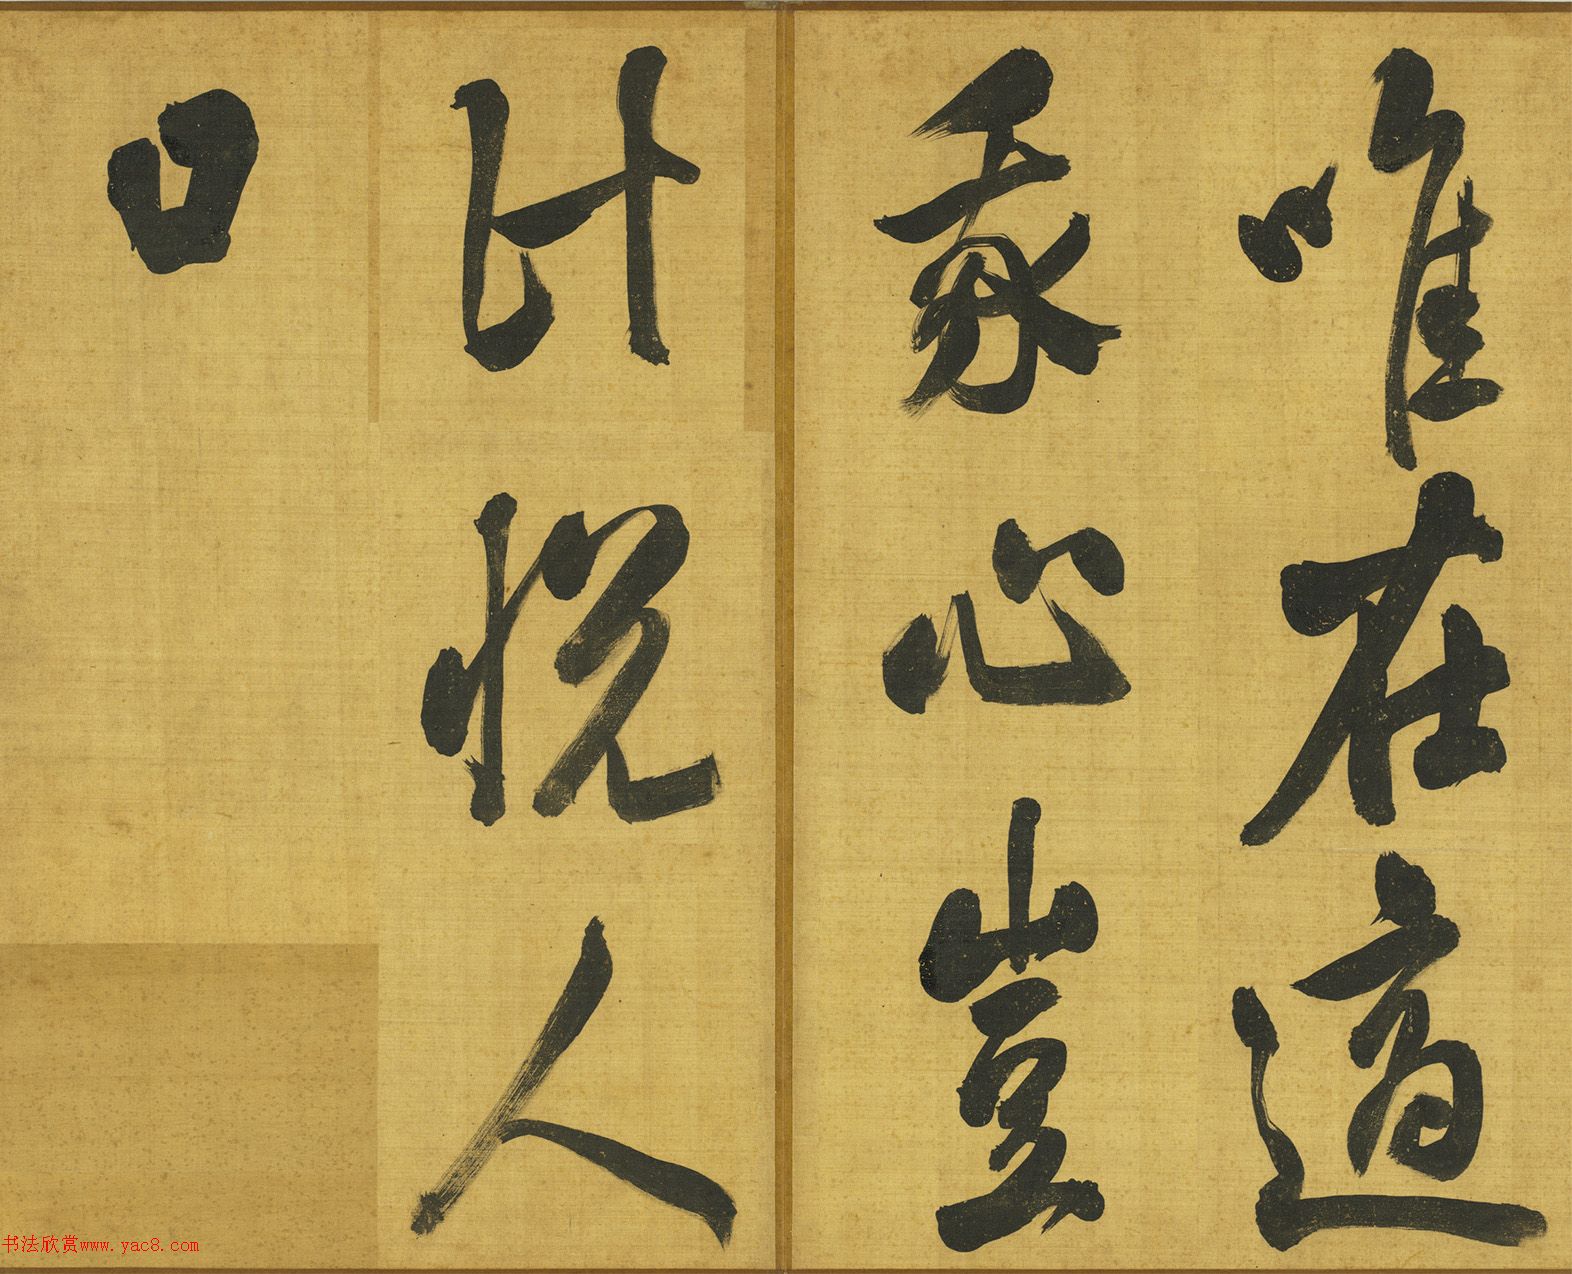 唯在適
我心豈
計悦人
口
书法欣赏www.yac8.com